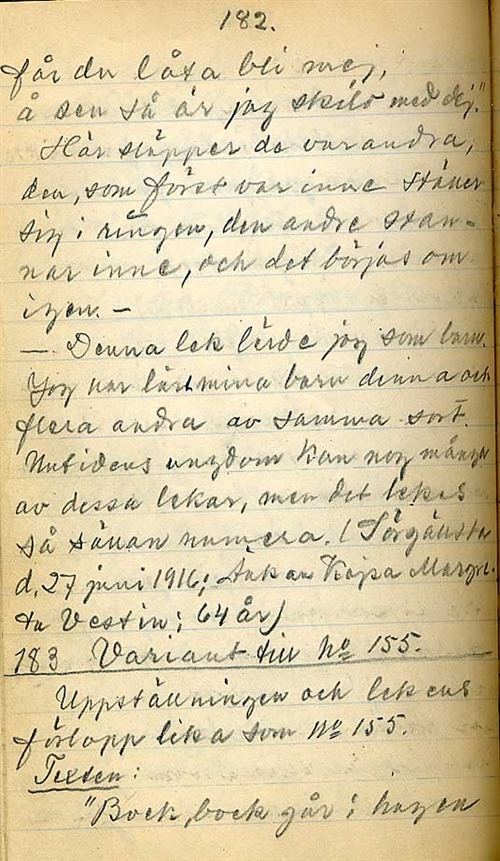 182.
får du låta bli mej,
å sen så är jag skild med dej."
Här släpper de varandra,
den, som först var inne ställer
sig i ringen, den andre stan-
nar inne, och det börjas om
igen. —
— Denna lek lärde jag som barn.
Jag har lärt mina barn denna och
flera andra av samma sort.
Nutidens ungdom kan nog många
av dessa lekar, men det lekes
så sällan numera. (
d. 27 juni 1916; Änkan Kajsa Margre-
ta Vestin; 64 år)
183 Variant till No 155.
Uppställningen och lekens
förlopp lika som No 155.
Texten:
"Bock, bock går i hagen